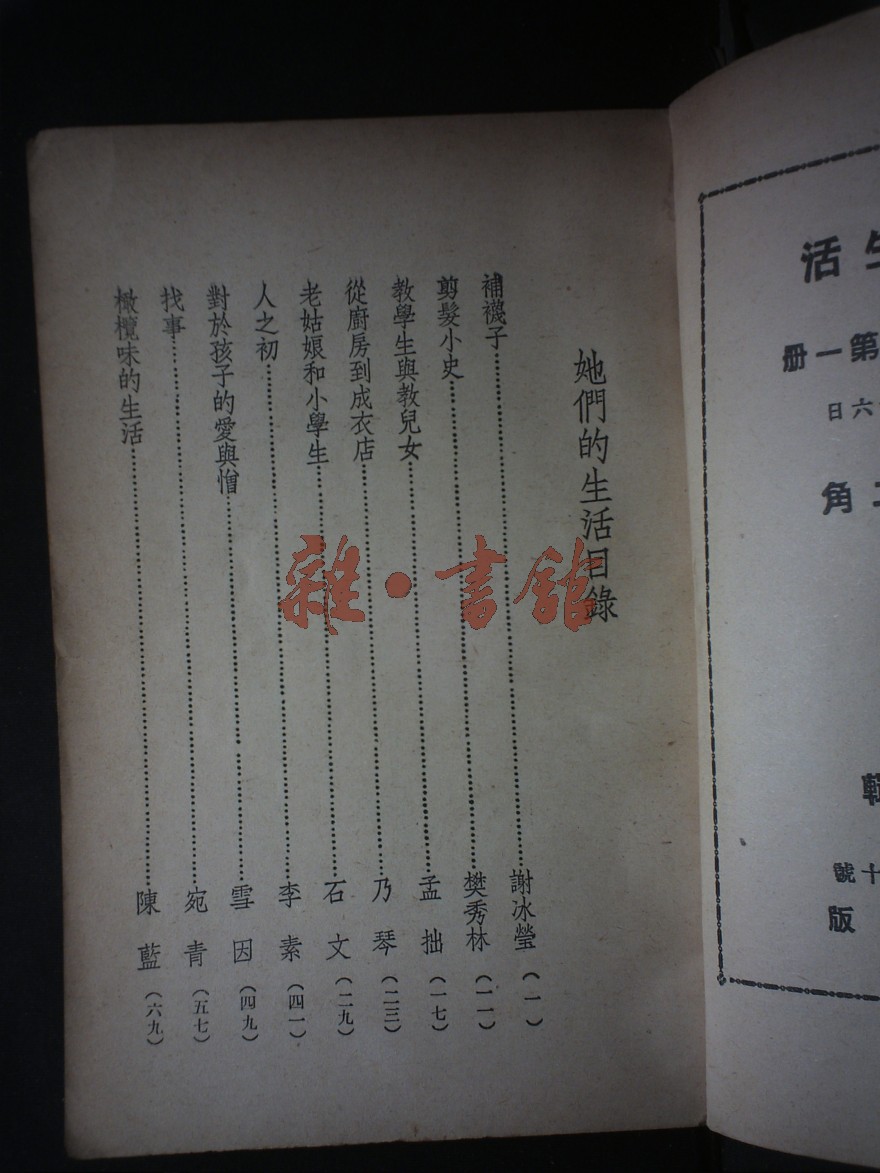 她們的生活目錄
補襪子 謝冰瑩 (一)
剪髮小史 樊秀林 (一一)
教學生與教兒女 孟拙 (一七)
從廚房到成衣店 乃琴 (二三)
老姑娘和小學生 石文 (二九)
人之初 李素 (四一)
對於孩子的愛與憎 雪因 (四九)
找事 宛青 (五七)
橄欖味的生活 陳藍 (六九)
雜·書館
生活
第一册
六日
角
輯
十號
版